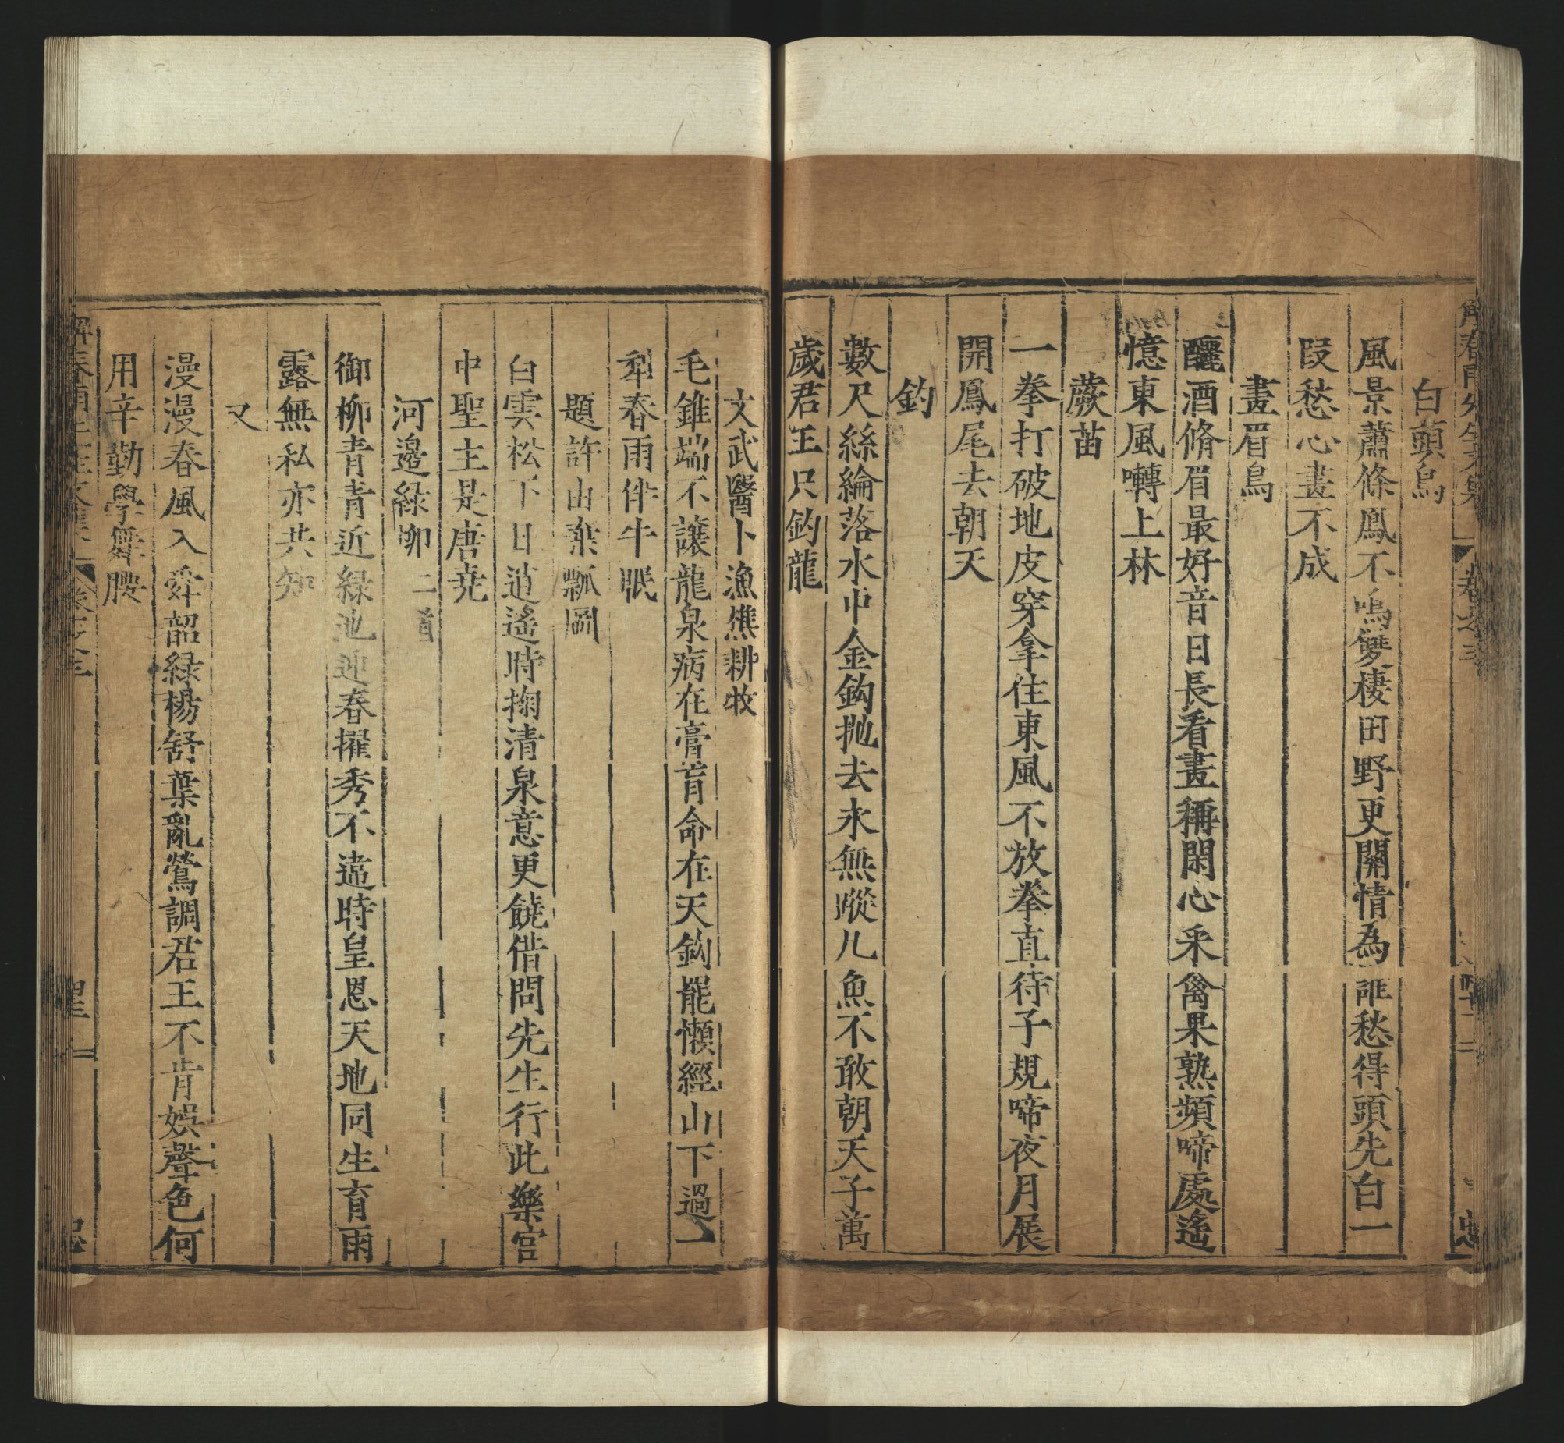 白頭烏
風景蕭條鳳不鳴雙棲田野更關情為誰愁得頭先白一
段愁心畫不成
畫眉鳥
釃酒脩眉最好音日長看畫稱閑心釆禽果熟頻啼處遙
憶東風囀上林
蕨苗
一拳打破地皮穿拿住東風不放拳直待子規啼夜月展
開鳳尾去朝天
釣
數尺絲綸落水中金鈎拋去永無蹤凡魚不敢朝天子萬
歲君王只釣龍
文武醫卜漁樵耕牧
毛錐端不讓龍泉病在膏肓命在天鈎罷懶經山下過一
犁春雨伴牛眠
題許由棄瓢圖
白雲松下日逍遙時掬清泉意更饒借問先生行此樂宮
中聖主是唐堯
河邊綠柳 二首
御柳青青近綠池迎春擢秀不違時皇恩天地同生育雨
露無私亦共知
又
漫漫春風入舜韶綠楊舒葉亂鶯調君王不肯娛聲色何
用辛勤學舞腰